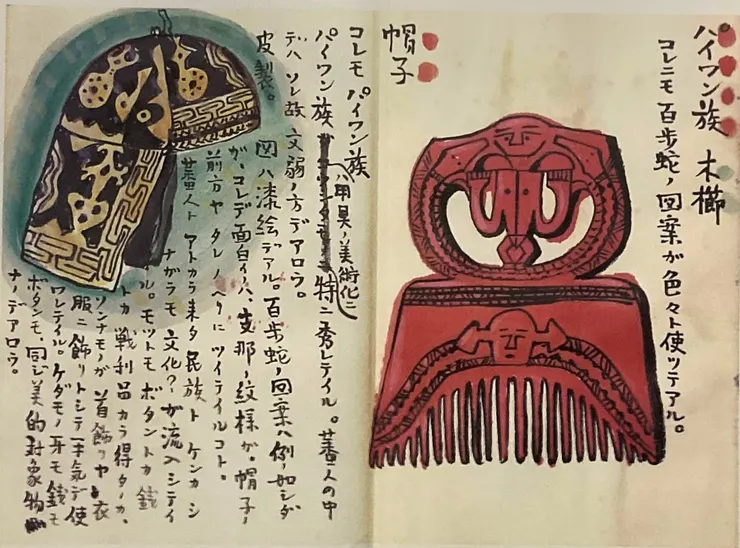 パイワン族 木櫛
コレニモ百歩蛇ノ図案ガ色々ト使ツテアル。
帽子
コレモパイワン族
パイワン族ハ用具ノ美術化ニ特ニ秀レテイル。蕃人の中
デハソレ故文弱ノ方デアロウ。
皮製。図ハ漆絵デアル。百歩蛇ノ図案ハ例ノ如シダ
ガ、コレデ面白イハ、支那ノ紋様ガ、帽子ノ
前方ヤタレノヘリニツイテイルコト。
蕃人トアトカラ来タ民族トケンカシ
ナガラモ文化?ガ流入シテイ
ル。モツトモボタントカ銭
トカ戦利品カラ得ターカ、
ソンナモノガ首飾リヤ衣
服ニ飾リトシテ平気デ使
ワレテイル。ケダモノ牙モ銭モ
ボタンモ同ジ美的対象物
ナノデアロウ。